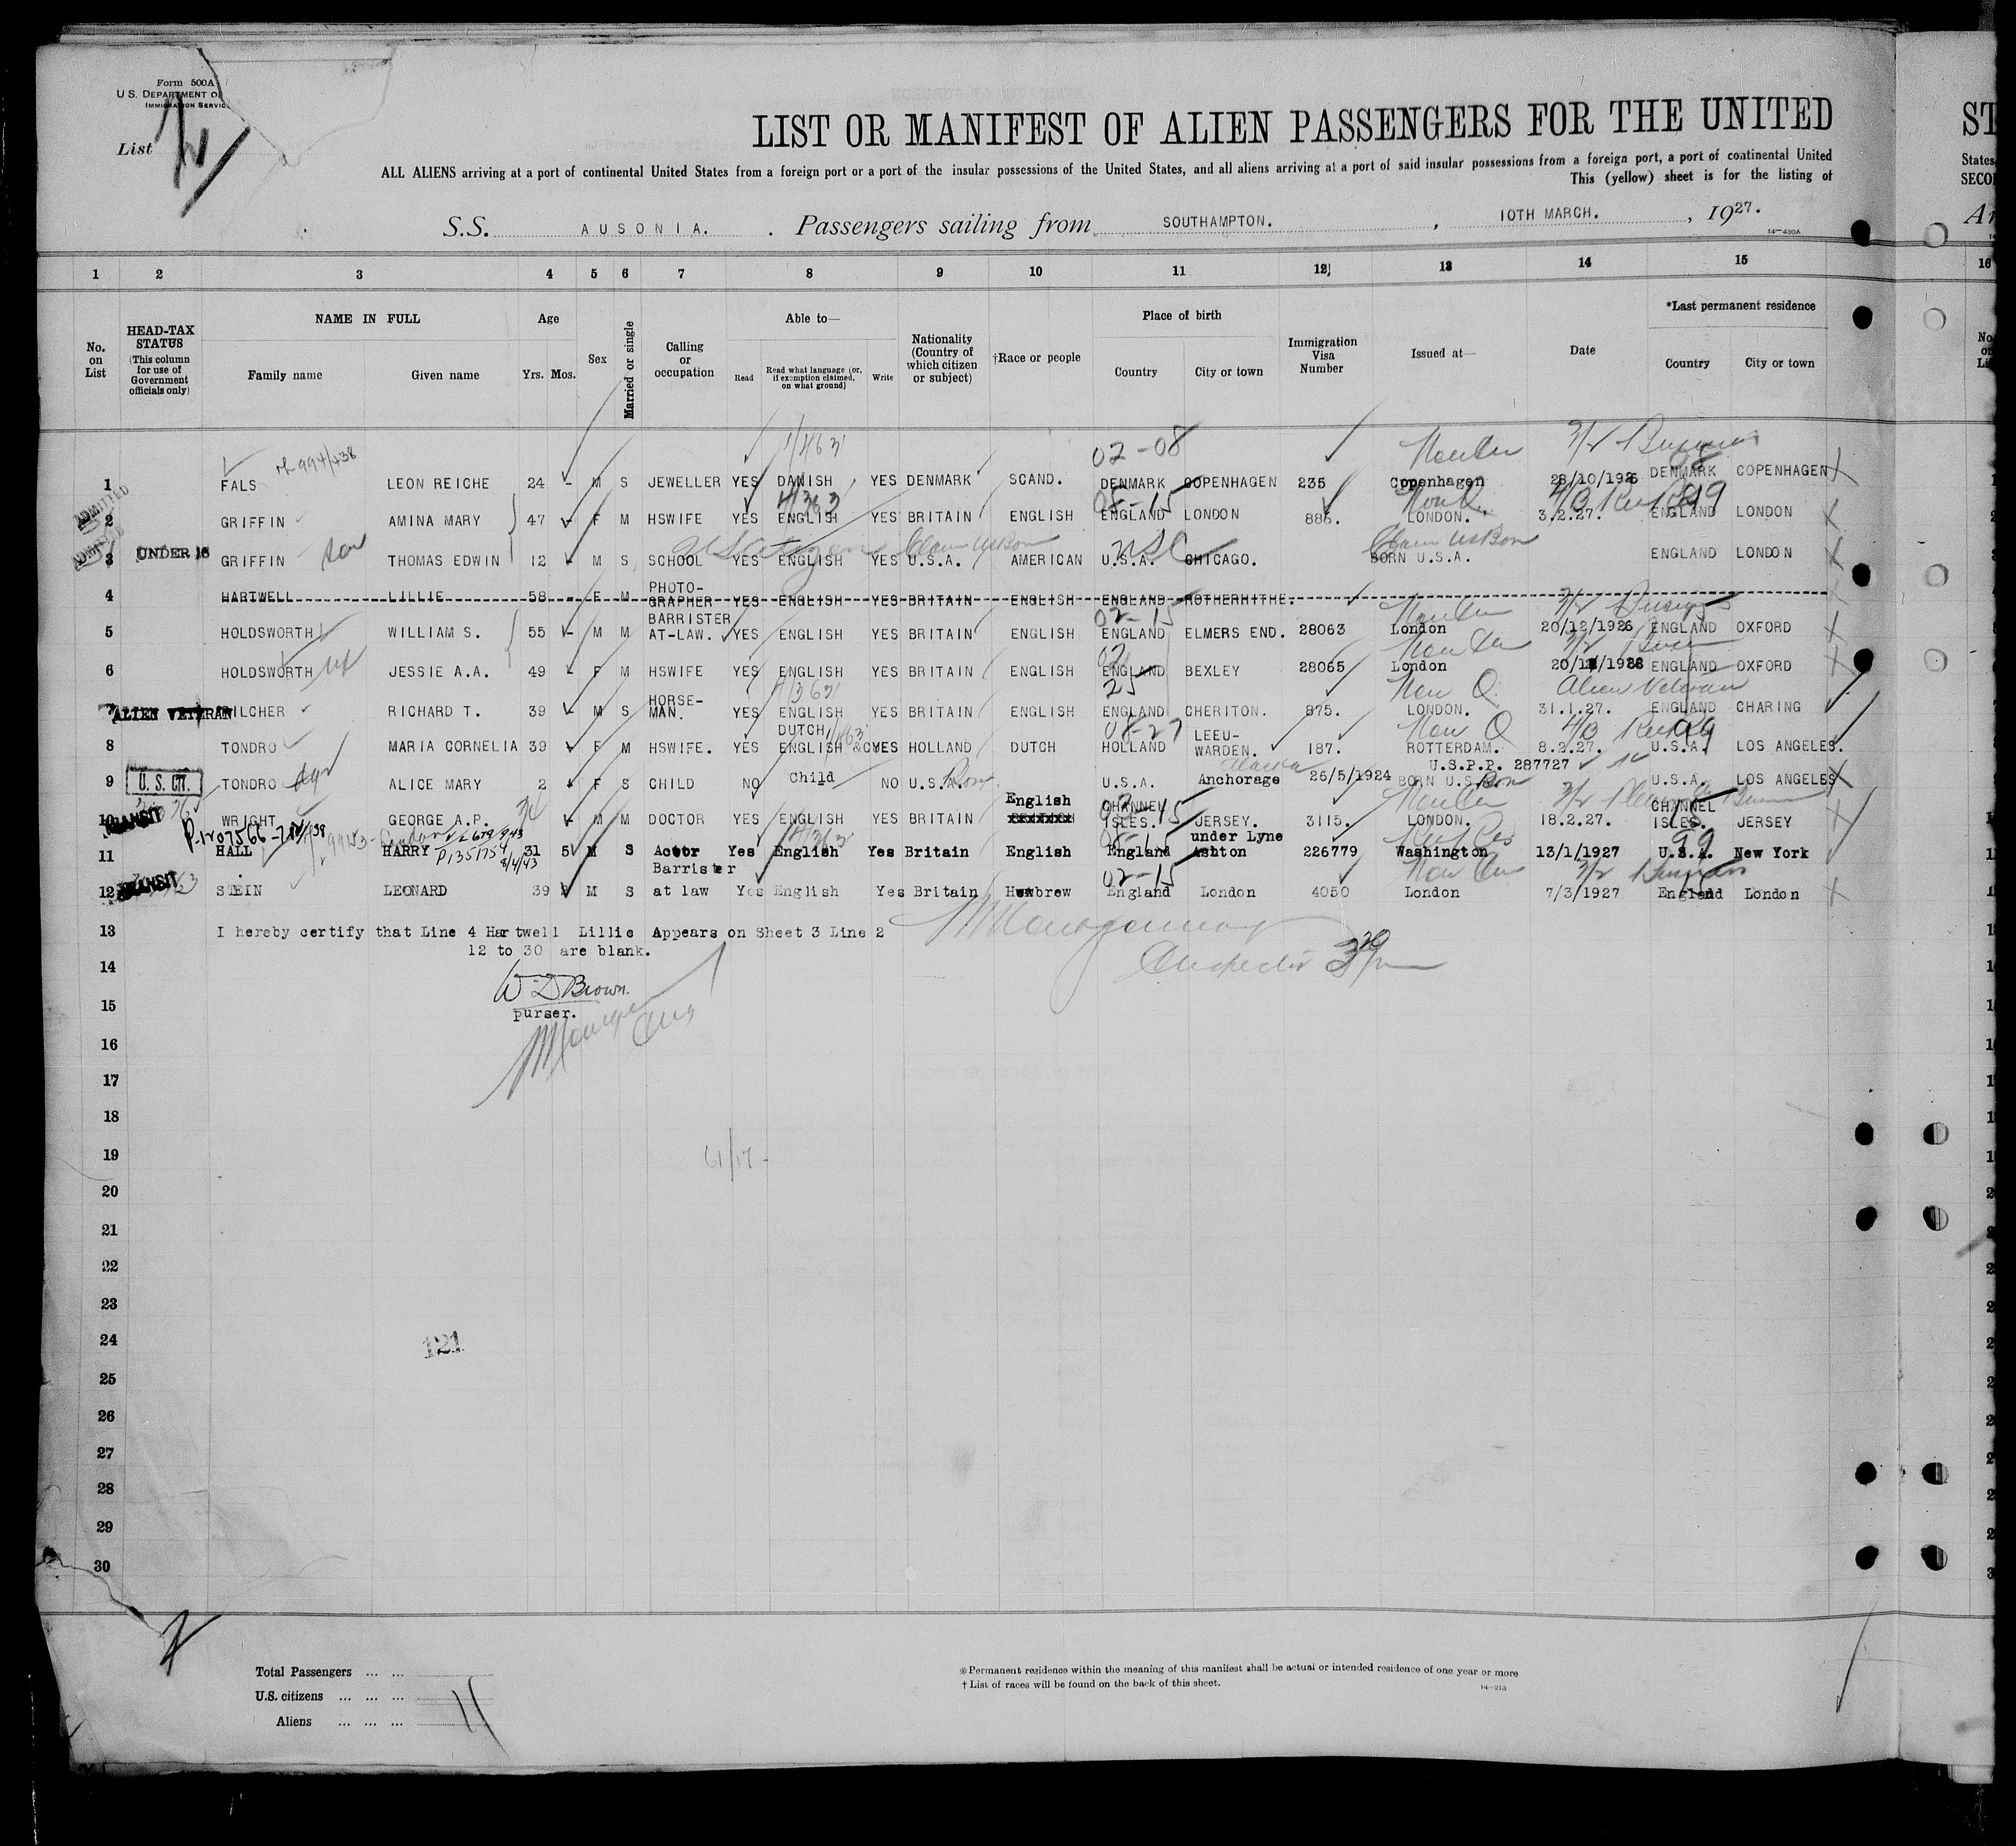 Form 500A
U.S. DEPARTMENT OF
IMMIGRATION SERVICE
List
LIST OR MANIFEST OF ALIEN PASSENGERS FOR THE UNITED
ST
ALL ALIENS arriving at a port of continental United States from a foreign port or a port of the insular possessions of the United States, and all aliens arriving at a port of said insular possessions from a foreign port, a port of continental United
States
This (yellow) sheet is for the listing of
SECO
S.S. AUSONIA. Passengers sailing from SOUTHAMPTON. , 10TH MARCH. , 1927.
14-430A
1 2 3 4 5 6 7 8 9 10 11 12 13 14 15 16
No. on List
HEAD-TAX STATUS (This column for use of Government officials only)
NAME IN FULL
Family name Given name
Age
Yrs. Mos.
Sex
Married or single
Calling or occupation
Able to—
Read Read what language (or, if exemption claimed, on what ground) Write
Nationality (Country of which citizen or subject)
†Race or people
Place of birth
Country City or town
Immigration Visa Number
Issued at—
Date
*Last permanent residence
Country City or town
02-08
1 FALS LEON REICHE 24 - M S JEWELLER YES DANISH YES DENMARK SCAND. DENMARK COPENHAGEN 235 Copenhagen 28/10/1926 DENMARK COPENHAGEN
ADMITTED
08-15
2 GRIFFIN AMINA MARY 47 - F M HSWIFE YES ENGLISH YES BRITAIN ENGLISH ENGLAND LONDON 886. LONDON. 3.2.27. ENGLAND LONDON
ADMITTED UNDER 16
3 GRIFFIN son THOMAS EDWIN 12 - M S SCHOOL YES ENGLISH YES U.S.A. AMERICAN U.S.A. CHICAGO. BORN U.S.A. ENGLAND LONDON
US Citizen Claim US Born USC Claim US Born
4 HARTWELL LILLIE 58 - F M PHOTO-GRAPHER YES ENGLISH YES BRITAIN ENGLISH ENGLAND ROTHERHITHE.
02-15
5 HOLDSWORTH WILLIAM S. 55 - M M BARRISTER AT-LAW. YES ENGLISH YES BRITAIN ENGLISH ENGLAND ELMERS END. 28063 London 20/12/1926 ENGLAND OXFORD
6 HOLDSWORTH JESSIE A.A. 49 - F M HSWIFE YES ENGLISH YES BRITAIN ENGLISH ENGLAND BEXLEY 28065 London ENGLAND OXFORD
Non Q. Alien Veteran
7 ALIEN VETERAN PILCHER RICHARD T. 39 - M S HORSE-MAN. YES ENGLISH YES BRITAIN ENGLISH ENGLAND CHERITON. 875. LONDON. 31.1.27. ENGLAND CHARING
08-27 Non Q
8 TONDRO MARIA CORNELIA 39 F M HSWIFE. YES DUTCH, ENGLISH YES HOLLAND DUTCH HOLLAND LEEU-WARDEN. 187. ROTTERDAM. 8.2.27. U.S.A. LOS ANGELES.
Alaska U.S.P.P. 287727
9 U.S. CIT. TONDRO dgr ALICE MARY 2 - F S CHILD NO Child NO U.S. Born U.S.A. Anchorage 26/5/1924 BORN U.S. U.S.A. LOS ANGELES
10 TRANSIT WRIGHT GEORGE A.P. 34 M M DOCTOR YES ENGLISH YES BRITAIN English CHANNEL ISLES. JERSEY. 3115. LONDON. 18.2.27. CHANNEL ISLES. JERSEY
11 HALL HARRY 31 5 M S Actor Yes English Yes Britain English England under Lyne Ashton 226779 Washington 13/1/1927 U.S.A. New York
02-15
12 TRANSIT STEIN LEONARD 39 M S Barrister at law Yes English Yes Britain Hebrew England London 4050 London 7/3/1927 England London
13 I hereby certify that Line 4 Hartwell Lillie Appears on Sheet 3 Line 2
12 to 30 are blank.
14
W D Brown.
15 purser.
16
17
18
19
61/17-
20
21
22
23
24
121
25
26
27
28
29
30
Total Passengers ... ...
U.S. citizens ... ... ...
Aliens ... ... ...
11
*Permanent residence within the meaning of this manifest shall be actual or intended residence of one year or more
† List of races will be found on the back of this sheet.
14-213